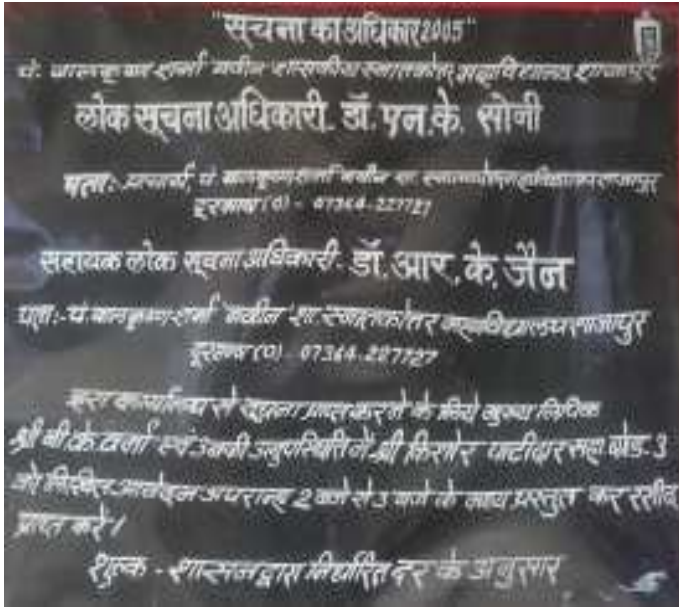 "सूचना का अधिकार 2005"
पं. बालकृष्ण शर्मा नवीन शासकीय स्नातकोत्तर महाविद्यालय शाजापुर
लोक सूचना अधिकारी- डॉ. एन.के. सोनी
पता:- प्राचार्य, पं बालकृष्ण शर्मा नवीन शा. स्नातकोत्तर महाविद्यालय शाजापुर
दूरभाष (O) - 07364-227727
सहायक लोक सूचना अधिकारी- डॉ. आर. के. जैन
पता:- पं. बालकृष्ण शर्मा नवीन शा. स्नातकोत्तर महाविद्यालय शाजापुर
दूरभाष (O) - 07364-227727
इस कार्यालय से सूचना प्राप्त करने के लिये मुख्य लिपिक
श्री बी.के. वर्मा एवं उनकी अनुपस्थिति में श्री किशोर पाटीदार सहा. ग्रेड-3
को लिखित आवेदन अपरान्ह 2 बजे से 3 बजे के मध्य प्रस्तुत कर रसीद
प्राप्त करे।
शुल्क - शासन द्वारा निर्धारित दर के अनुसार